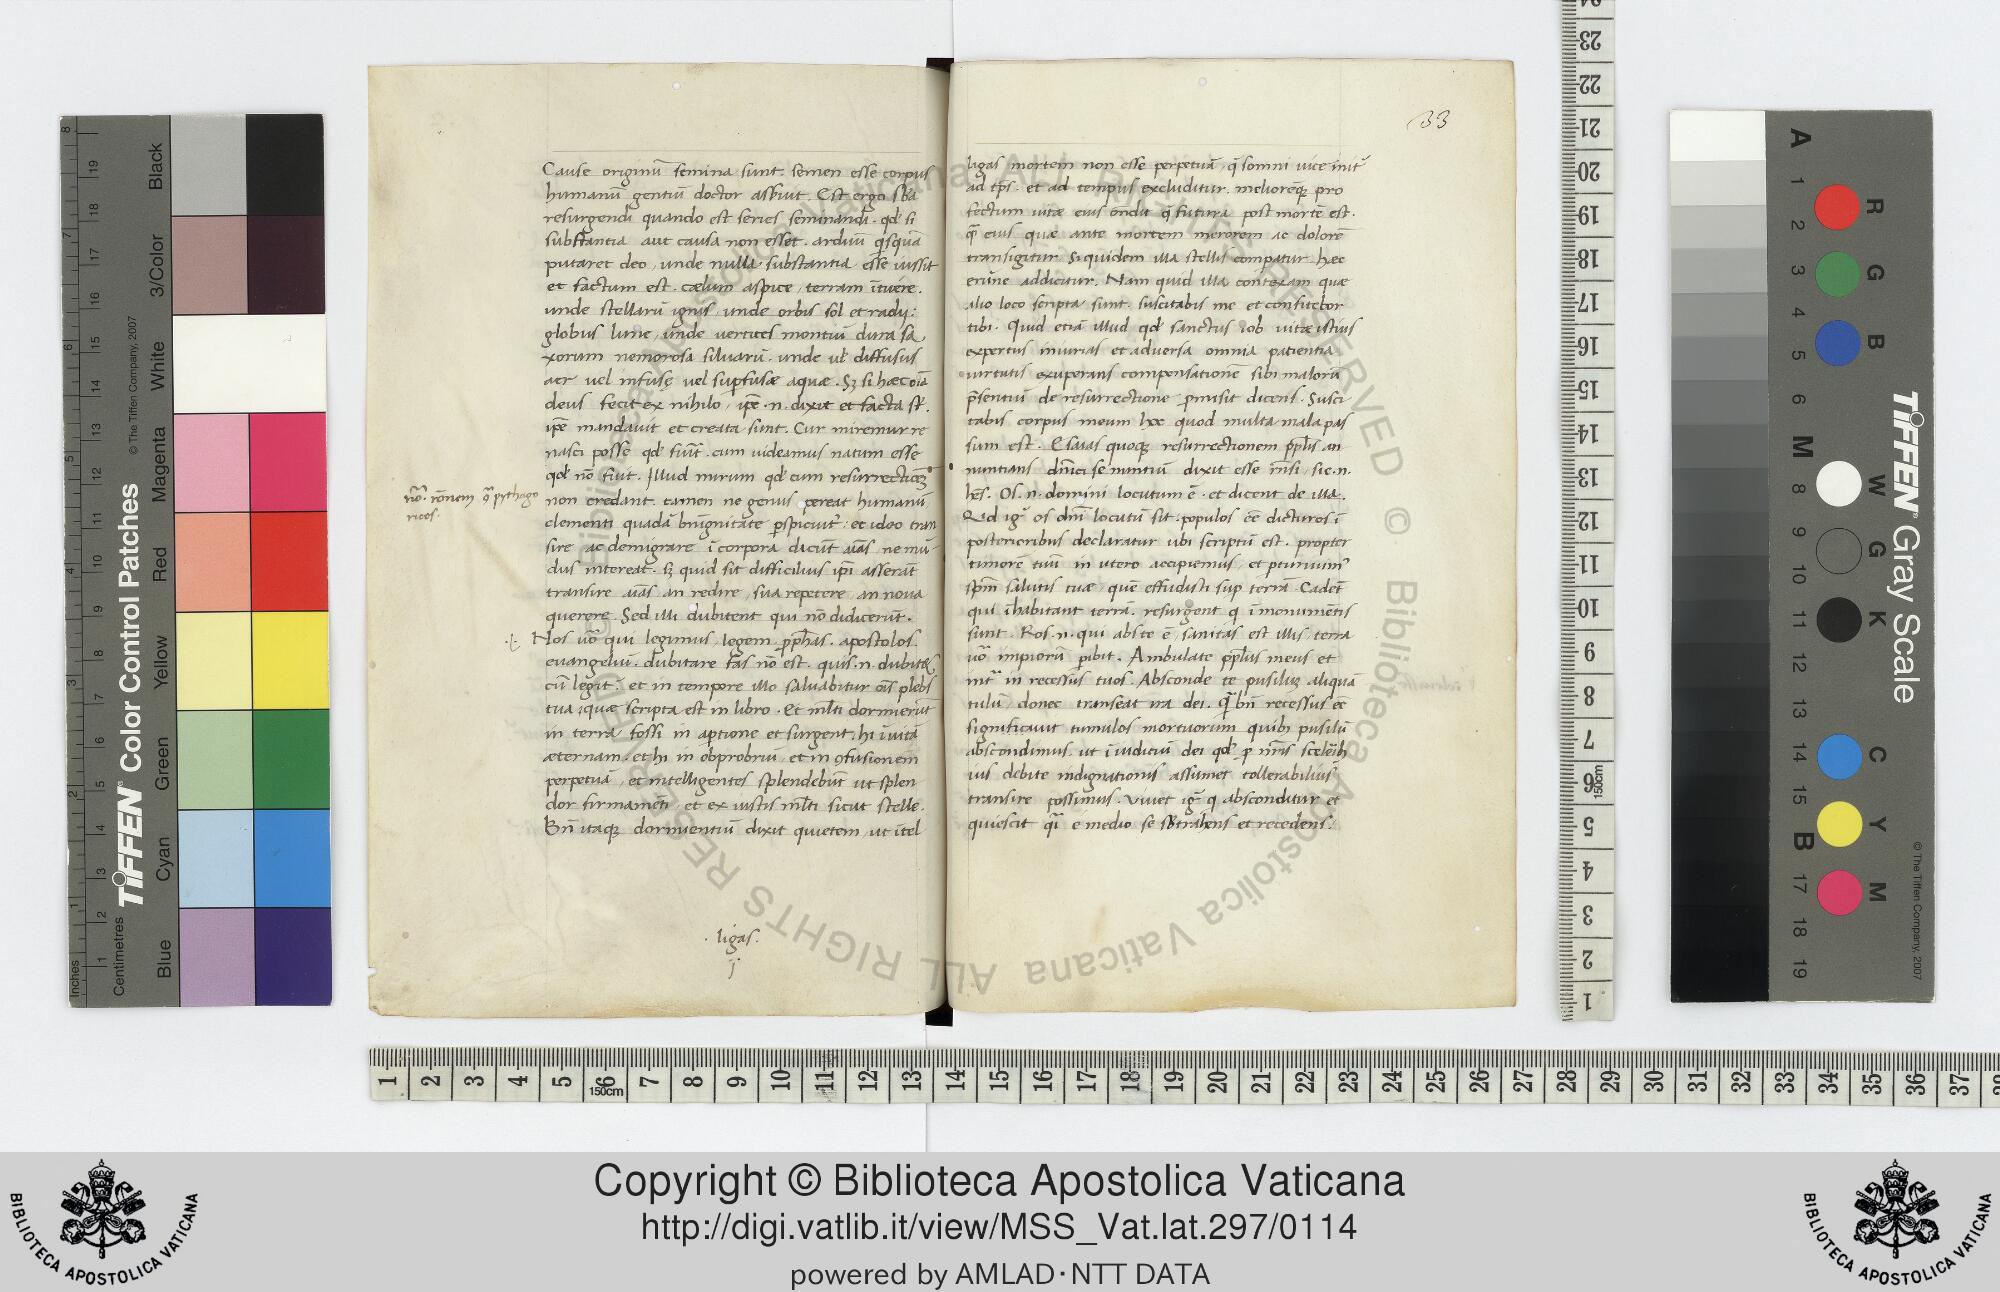 Cause originũ semina sunt. semen esse corpus
humanũ gentiũ doctor asẽruit. Est ergo sb̃a
resurgendi quando est series seminandi. qđ si
substantia aut causa non esset. arduũ q̃squã
putaret deo, unde nulla substantia esse iussit
et factum est. cælum aspice, terram ĩtuere.
unde stellarũ ignis, unde orbis sol et radij:
globus lune, unde vertices montiũ dura sa
xorum nemorosa siluarũ. unde ut̃ diffusus
aer uel infuse uel supfusæ aquæ. Sʒ si hæc oĩa
deus fecit ex nihilo, ipẽ .n. dixit et facta st̃.
ipẽ mandauit et creata sunt. Cur miremur re
nasci posse qđ fuit̃. cum uideamus natum esse
qđ nõ fuit. Illud mirum qđ cum resurrectioẽʒ
non credant. tamen ne genus pereat humanũ
clementi quadã benignitate pspiciut̃: et ideo tran
sire ac demigrare ĩ corpora dicũt aĩas ne mũ-
dus intereat. sʒ quid sit difficilius ip̃i asserãt
transire aĩas an redire, sua repetere an noua
querere. Sed illi dubitent qui nõ didicerũt.
Nos uõ qui legimus legem. pphãs. apostolos
euangeliũ. dubitare fas nõ est. quis .n. dubitet
cũ legit: et in tempore illo saluabitur oĩs plebs
tua, quæ scripta est in libro. et mĩti dormierũt
in terra fossi in aptione et surgent. hi ĩ uitã
æternam. et hi in obprobriũ et in ꝯfusionem
perpetuã, et intelligentes splendebũt ut splen
dor firmamẽti et ex iustis mĩti sicut stelle.
Bñ itaqʒ dormientiũ dixit quietem, ut ĩtel
nõ. rõnem ꝯ̃ pythago
ricos.
.ligas.
j
33
ligas mortem non esse perpetuã, q̃ somni uice ĩnit̃
ad tp̃s. et ad tempus excluditur. melioreqʒ pro
fectum uitæ eius õndit q̃ futura post mortẽ est.
q̃ eius quæ ante mortem merorem ac dolorẽ
transigitur. si quidem illa stellis compatur hæc
erũne addicitur. Nam quid illa contexam quæ
alio loco scripta sunt. suscitabis me et confitebor
tibi. Quid etiã illud qđ sanctus iob uitæ istius
expertus iniurias et aduersa omnia patientia
uirtutis exuperans compensationẽ sibi malorũ
p̃sentiũ de resurrectione pmisit dicens. Susci
tabis corpus meum hoc quod multa mala pas
sum est. Esaias quoqʒ resurrectionem pp̃lis an
nuntians dñici se nuntiũ dixit esse m̃si. sic .n.
hẽs. Os .n. domini locutum ẽ. et dicent de illa.
Qđ ig̃ os dñi locutũ sit populos eẽ dicturos ĩ
posterioribus declaratur ubi scriptũ est. propter
timorẽ tuũ in utero accipiemus, et pturium̃
sp̃m salutis tuæ, quẽ effudisti sup terrã. Cadẽt
qui ĩhabitant terrã. resurgent q̃ ĩ monumẽtis
sunt. Ros .n. qui abs te ẽ, sanitas est illis, terra
uõ impiorũ pibit. Ambulate pp̃lus meus et
int̃ in recessus tuos. Absconde te pusillũ aliquã
tulũ donec transeat ira dei. Q̃ bñ recessus ec
significauit tumulos mortuorum quibʒ pusillũ
abscondimus. ut ĩ iudiciũ dei qđ p nr̃is scelerib
ius debite indignationis assumet tollerabilius
transire possimus. Viuet ig̃ q̃ absconditur et
quiescit q̃i e medio se sbtrahens et recedens.
Black
3/Color
White
Magenta
Red
Yellow
Green
Cyan
Blue
TIFFEN® Color Control Patches
© The Tiffen Company, 2007
Inches
Centimetres
TIFFEN® Gray Scale
© The Tiffen Company, 2007
© Biblioteca Apostolica Vaticana ALL RIGHTS RESERVED
Copyright © Biblioteca Apostolica Vaticana
http://digi.vatlib.it/view/MSS_Vat.lat.297/0114
powered by AMLAD·NTT DATA
BIBLIOTECA APOSTOLICA VATICANA
BIBLIOTECA APOSTOLICA VATICANA